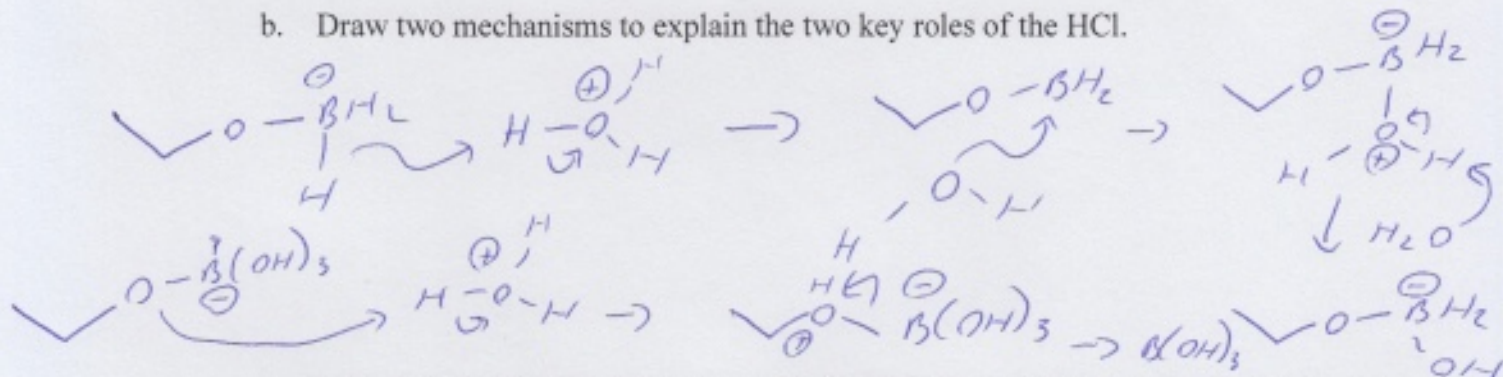 b. Draw two mechanisms to explain the two key roles of the HCl.
⊖ ⊕ H ⊖
O – BH2 H – O H → O – BH2 → O – B H2
H O H H O ⊕ H
H H2O
O – B(OH)3 ⊖ ⊕ H H – O – H → H O ⊕ ⊖ B(OH)3 → B(OH)3 O – BH2 ⊖
OH